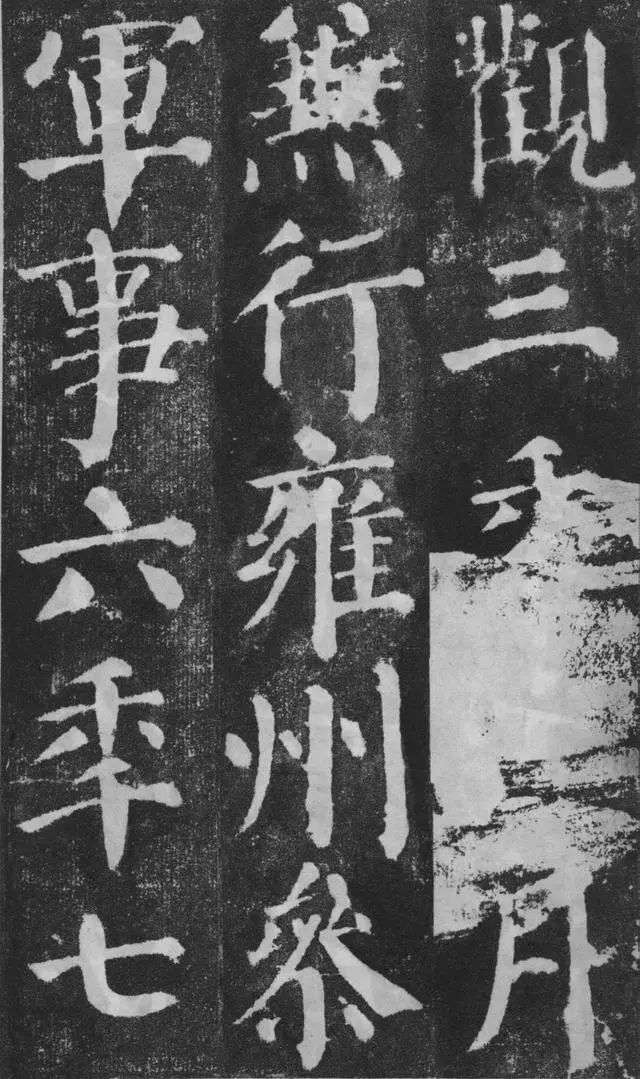 觀三年月
兼行雍州參
軍事六年七